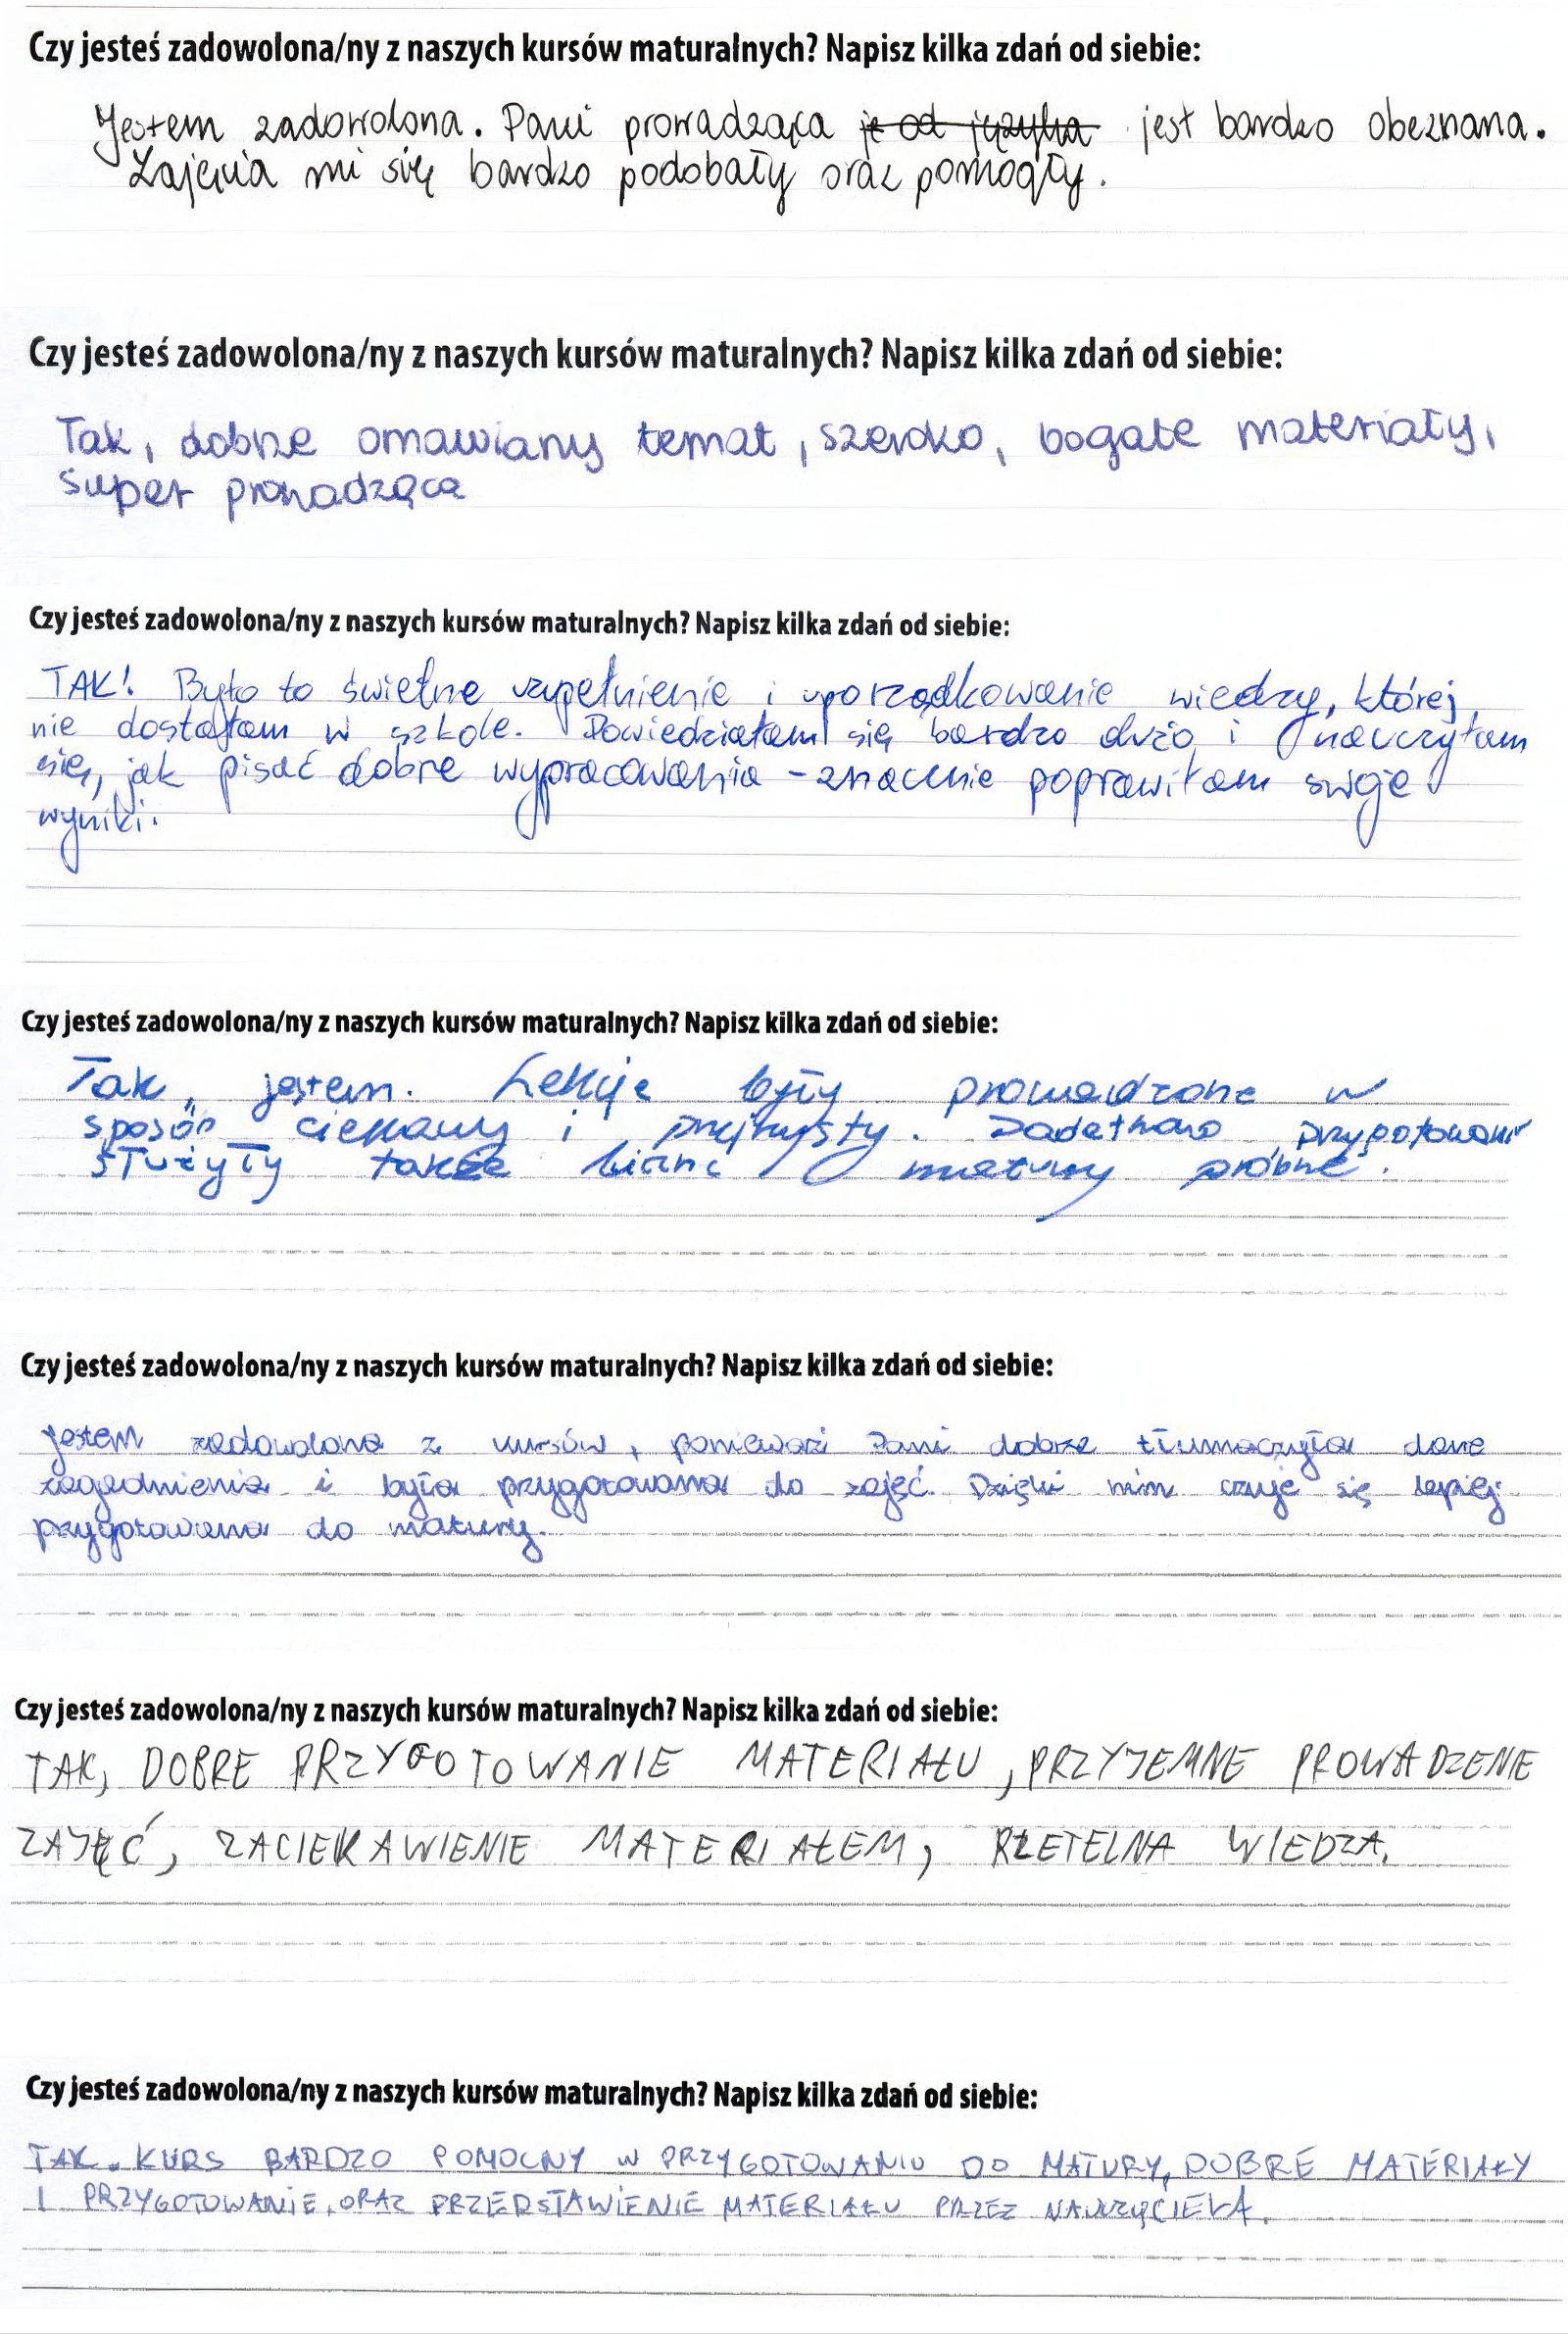 Czy jesteś zadowolona/ny z naszych kursów maturalnych? Napisz kilka zdań od siebie:
Jestem zadowolona. Pani prowadząca je od języka jest bardzo obeznana.
Zajęcia mi się bardzo podobały oraz pomogły.
Czy jesteś zadowolona/ny z naszych kursów maturalnych? Napisz kilka zdań od siebie:
Tak, dobrze omawiany temat, szeroko, bogate materiały,
super prowadząca
Czy jesteś zadowolona/ny z naszych kursów maturalnych? Napisz kilka zdań od siebie:
TAK! Było to świetne uzupełnienie i uporządkowanie wiedzy, której
nie dostałam w szkole. Dowiedziałam się bardzo dużo i nauczyłam
się, jak pisać dobre wypracowania – znacznie poprawiłam swoje
wyniki.
Czy jesteś zadowolona/ny z naszych kursów maturalnych? Napisz kilka zdań od siebie:
Tak, jestem. Lekcje były prowadzone w
sposób ciekawy i przejrzysty. Dodatkowo przygotowaniu
służyły także liczne matury próbne.
Czy jesteś zadowolona/ny z naszych kursów maturalnych? Napisz kilka zdań od siebie:
Jestem zadowolona z kursów, ponieważ Pani dobrze tłumaczyła dane
zagadnienia i była przygotowana do zajęć. Dzięki nim czuje się lepiej
przygotowana do matury.
Czy jesteś zadowolona/ny z naszych kursów maturalnych? Napisz kilka zdań od siebie:
TAK, DOBRE PRZYGOTOWANIE MATERIAŁU, PRZYJEMNE PROWADZENIE
ZAJĘĆ, ZACIEKAWIENIE MATERIAŁEM, RZETELNA WIEDZA.
Czy jesteś zadowolona/ny z naszych kursów maturalnych? Napisz kilka zdań od siebie:
TAK. KURS BARDZO POMOCNY W PRZYGOTOWANIU DO MATURY, DOBRE MATERIAŁY
I PRZYGOTOWANIE, ORAZ PRZEDSTAWIENIE MATERIAŁU PRZEZ NAUCZYCIELA.